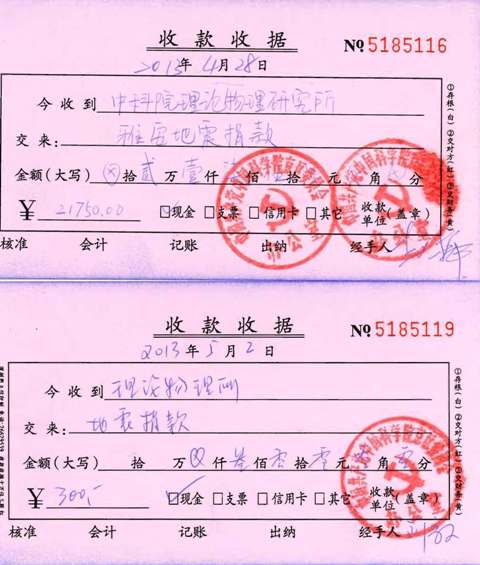 收款收据
№ 5185116
2013年4月28日
今收到 中科院理论物理研究所
交来: 雅安地震捐款
金额(大写) ⊗拾贰万壹仟柒佰伍拾 元 角 分
¥ 21750.00 ☑现金 □支票 □信用卡 □其它 收款单位(盖章)
核准 会计 记账 出纳 经手人
①存根(白) ②交对方(红) ③交财务(黄)
收款收据
№ 5185119
2013年5月2日
今收到 理论物理所
交来: 地震捐款
金额(大写) 拾 万⊗仟叁佰零拾零元零角零分
¥ 300,- ☑现金 □支票 □信用卡 □其它 收款单位(盖章)
核准 会计 记账 出纳 经手人
①存根(白) ②交对方(红) ③交财务(黄)